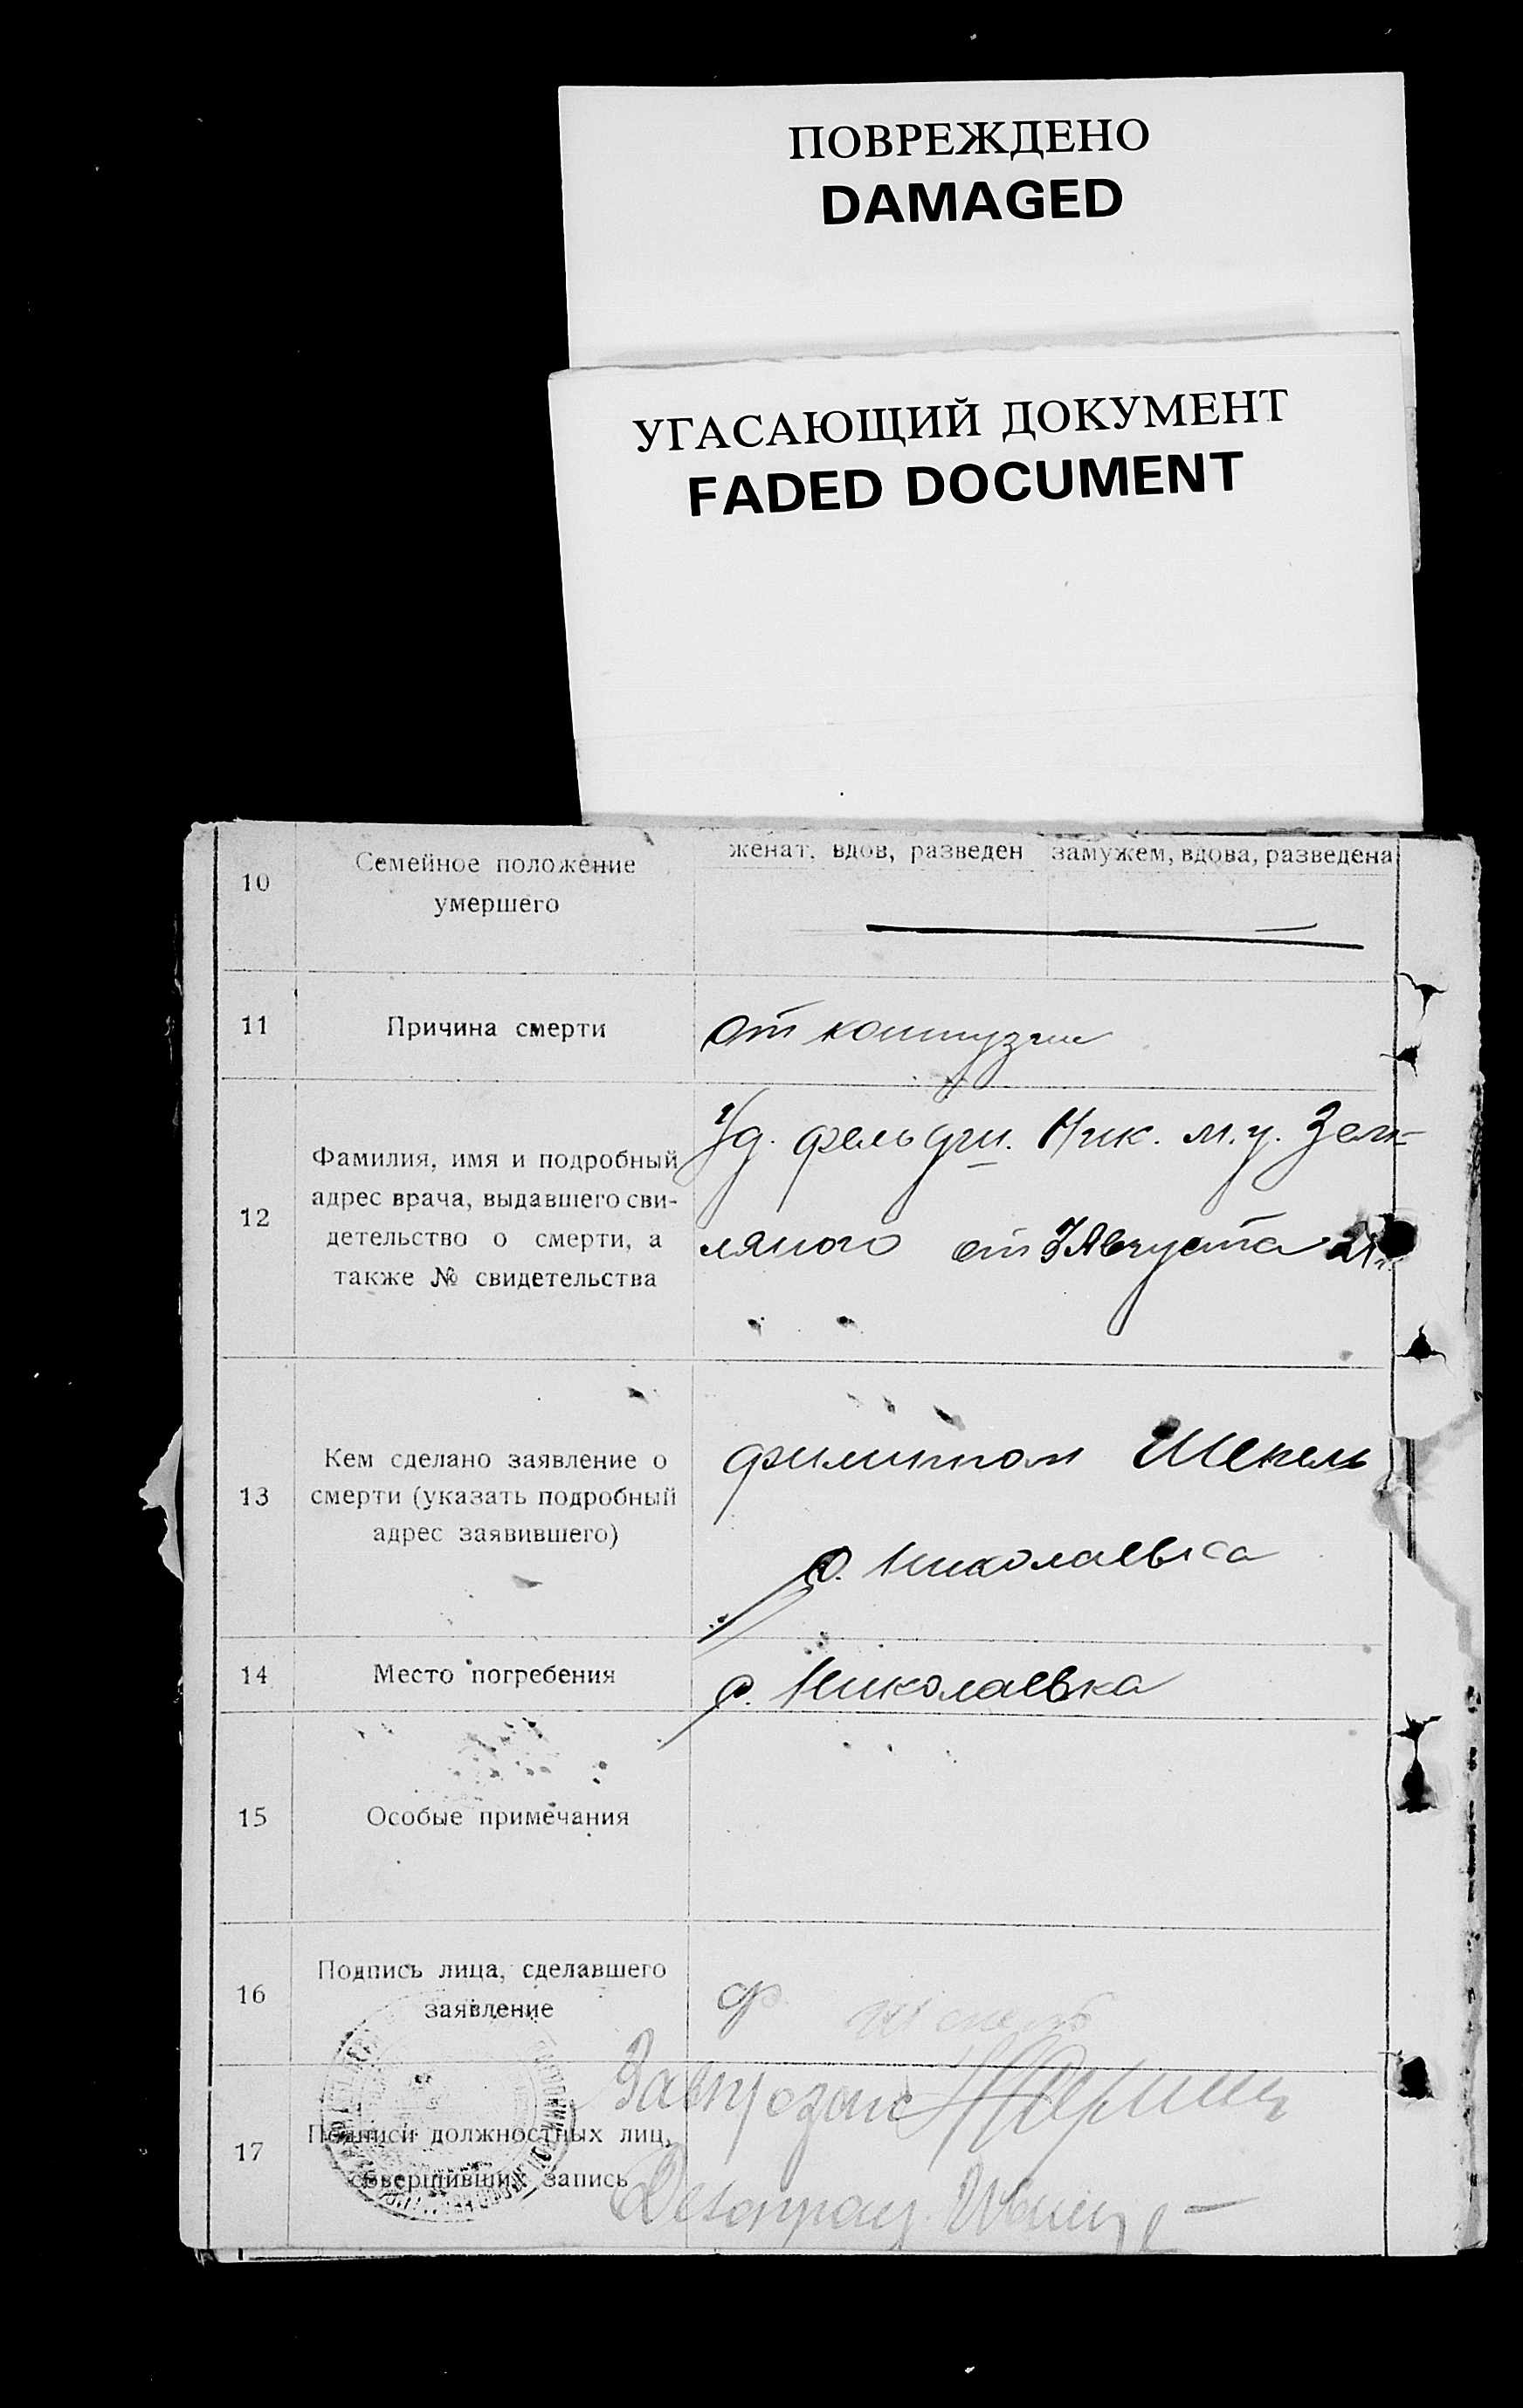 ПОВРЕЖДЕНО
DAMAGED
УГАСАЮЩИЙ ДОКУМЕНТ
FADED DOCUMENT
10
Семейное положение
умершего
женат, вдов, разведен
замужем, вдова, разведена
11
Причина смерти
от контузии
12
Фамилия, имя и подробный
адрес врача, выдавшего сви-
детельство о смерти, а
также № свидетельства
Уд. фельдш. Ник. м. у. Зем-
ляного от 3 Августа 21г.
13
Кем сделано заявление о
смерти (указать подробный
адрес заявившего)
Филиппом Шекель
с. Николаевка
14
Место погребения
с. Николаевка
15
Особые примечания
16
Подпись лица, сделавшего
заявление
Ф.
17
Подписи должностных лиц,
совершивших запись
Завпрозагс
Делопроиз.